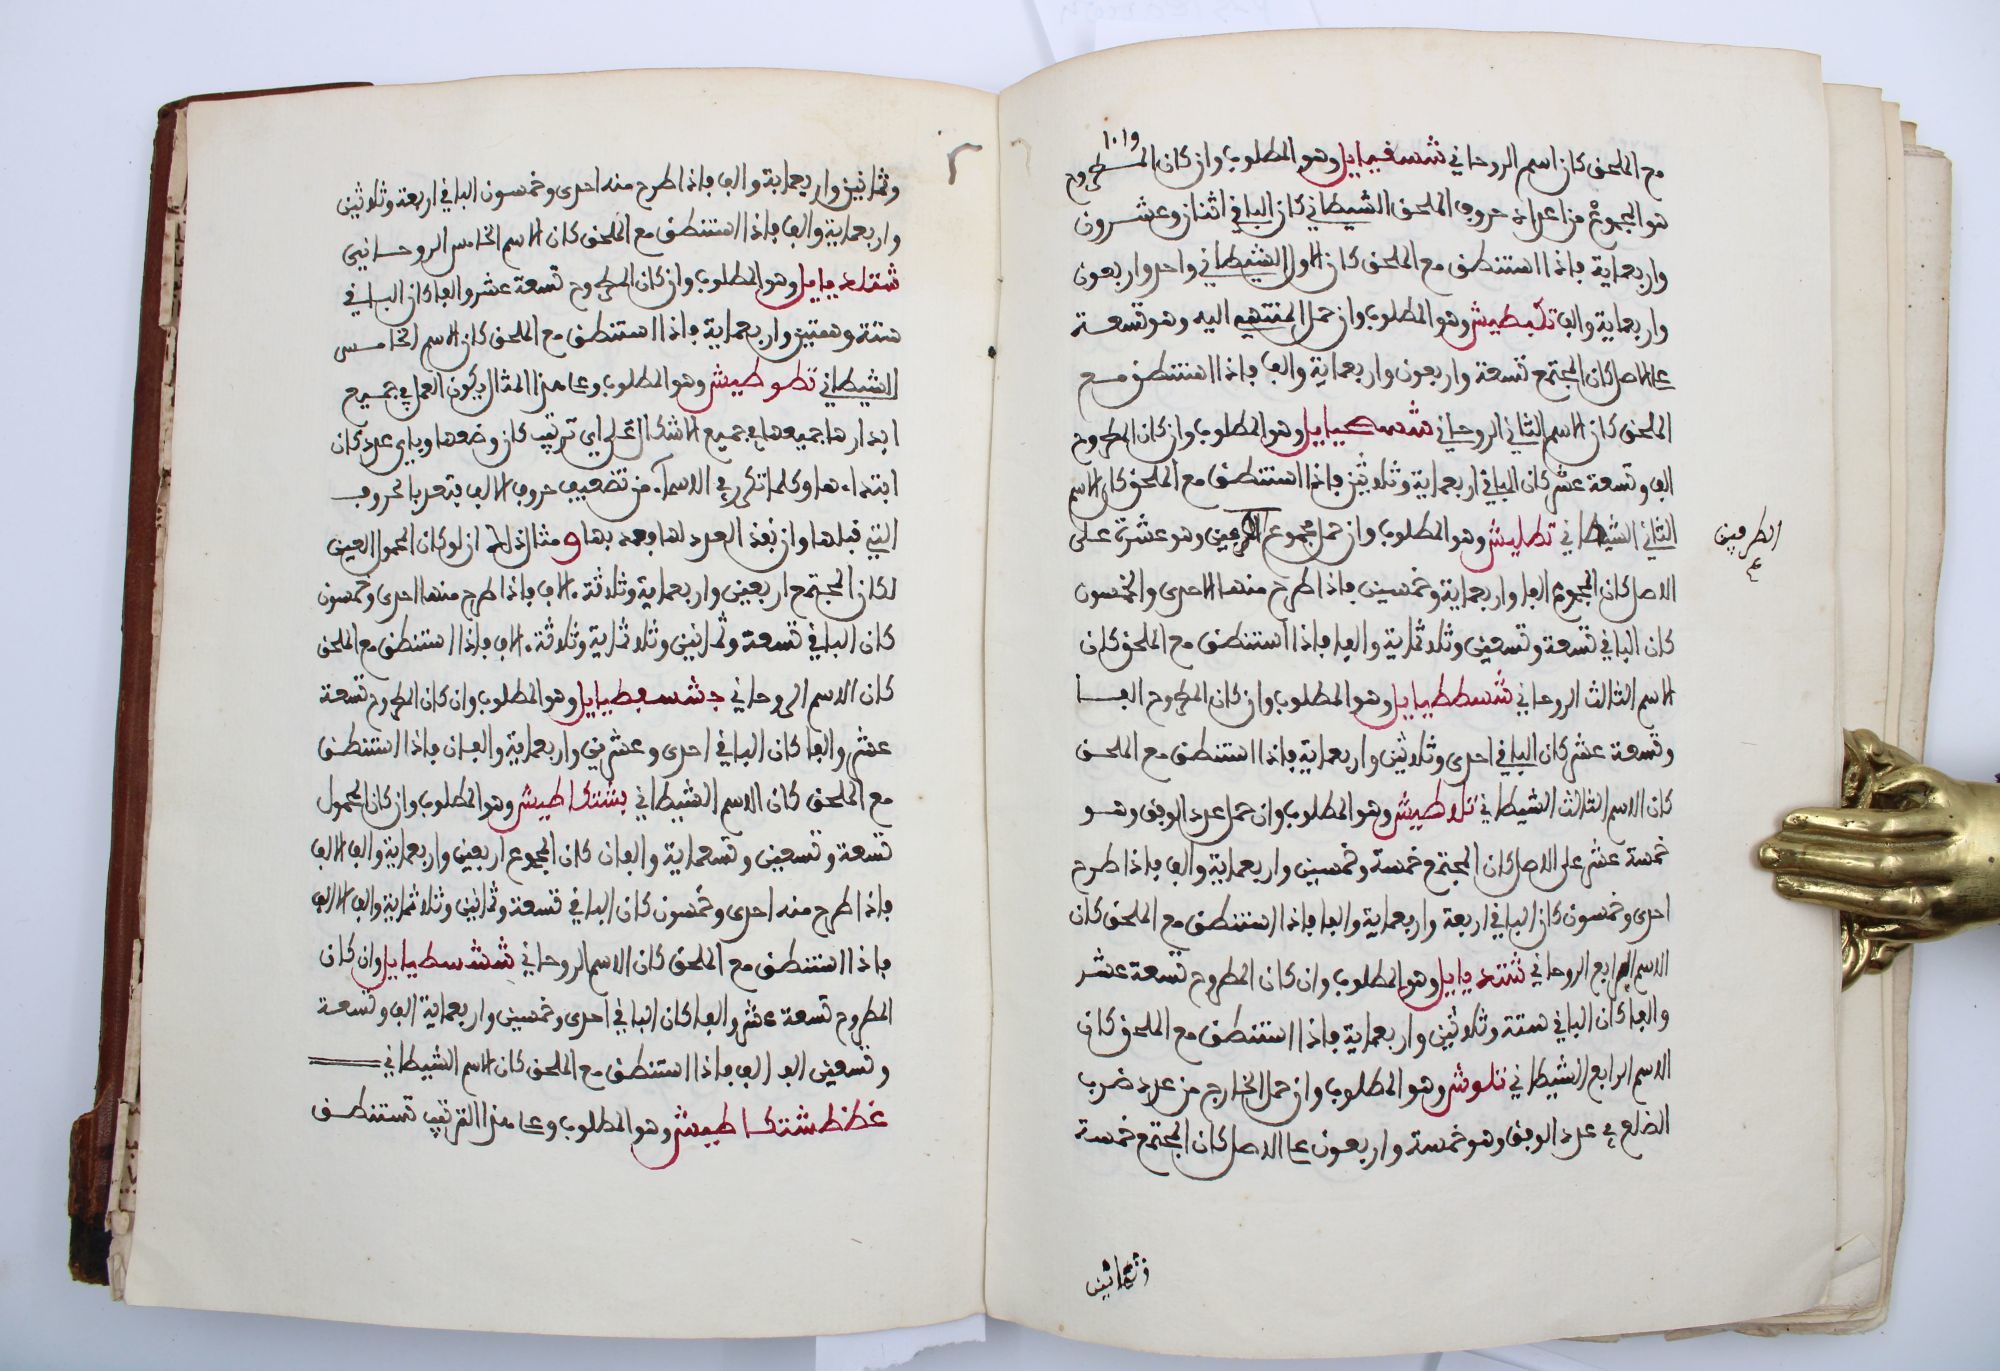 ١٠١٩
مع الملحق كان اسم الروحاني شسفيايل وهو المطلوب وان كان المطروح
هو المجموع من اعداد حروف الملحق الشيطاني كان الباقي اثنان وعشرون
واربعماية فاذا استنطق مع الملحق كان الاول الشيطاني واحد واربعون
واربعماية والف تكبطيش وهو المطلوب وان حمل المنتهي اليه وهو تسعة
على الاصل كان المجتمع تسعة واربعون واربعماية والف فاذا استنطق مع
الملحق كان الاسم الثاني الروحاني وهو المطلوب وان كان المطروح
الف وتسعة عشر كان الباقي اربعماية وثلاثين فاذا استنطق مع الملحق كان الاسم
الثاني الشيطاني تطليش وهو المطلوب وان حمل مجموع الطرفين وهو عشرة على
الطرفين
الاصل كان المجموع الفا واربعماية وخمسين فاذا طرح منها الاحدى والخمسون
كان الباقي تسعة وتسعين وثلاثماية والف فاذا استنطق مع الملحق كان
الاسم الثالث الروحاني شسططيايل وهو المطلوب وان كان المطروح الفا
وتسعة عشر كان الباقي احدى وثلاثين واربعماية فاذا استنطق مع الملحق
كان الاسم الثالث الشيطاني تلاطيش وهو المطلوب وان حمل عدد الوفق وهو
خمسة عشر على الاصل كان المجتمع خمسة وخمسين واربعماية والف فاذا طرح
احدى وخمسون كان الباقي اربعة واربعماية والف فاذا استنطق مع الملحق كان
الاسم الرابع الروحاني شتديايل وهو المطلوب وان كان المطروح تسعة عشر
والفا كان الباقي ستة وثلاثين واربعماية فاذا استنطق مع الملحق كان
الاسم الرابع الشيطاني تلوش وهو المطلوب وان حمل الخارج من عدد ضرب
الضلع في عدد الوفق وهو خمسة واربعون على الاصل كان المجتمع خمسة
وثمانين
٢
وثمانين واربعماية والف فاذا طرح منه احدى وخمسون الباقي اربعة وثلاثين
واربعماية والف فاذا استنطق مع الملحق كان الاسم الخامس الروحاني
شتلديايل وهو المطلوب وان كان المطروح تسعة عشر والفا كان الباقي
ستة وستين واربعماية فاذا استنطق مع الملحق كان الاسم الخامس
الشيطاني تطوطيش وهو المطلوب وعلى هذا المثال يكون العمل في جميع
ابدارها جميعها في جميع الاشكال على اي ترتيب كان وضعها وباي عدد كان
ابتداءها وكلما تكرر في الاسماء من تضعيف حروف الالف فتعربا لحروف
التي قبلها وان نفذ العدد لها فعمد بها ومثال ذلك ان لو كان المحمول الفين
لكان المجتمع اربعين واربعماية وثلاثة الاف فاذا طرح منها احدى وخمسون
كان الباقي تسعة وثمانين وثلاثماية وثلاثة الاف فاذا استنطق مع الملحق
كان الاسم الروحاني جشسفطيايل وهو المطلوب وان كان المطروح تسعة
عشر والفا كان الباقي احدى وعشرين واربعماية والفان فاذا استنطق
مع الملحق كان الاسم الشيطاني بشتكاطيش وهو المطلوب وان كان المحمول
تسعة وتسعين وتسعماية والفان كان المجموع اربعين واربعماية والف الالف
فاذا طرح منه احدى وخمسون كان الباقي تسعة وثمانين وثلاثماية والف الالف
فاذا استنطق مع الملحق كان الاسم الروحاني ششسطيايل وان كان
المطروح تسعة عشر والفا كان الباقي احدى وخمسين واربعماية الف وتسعة
وتسعين الف الف فاذا استنطق مع الملحق كان الاسم الشيطاني
غظظشتكاطيش وهو المطلوب وعلى هذا الترتيب تستنطق